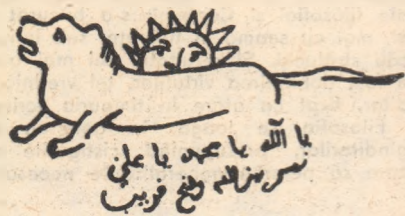 يا الله يا محمد يا علي
نصر من الله و فتح قريب